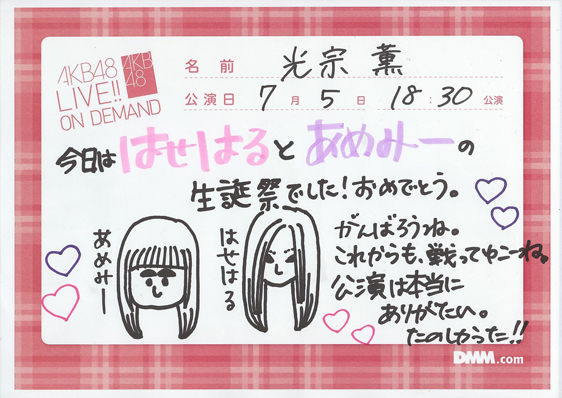 AKB48
LIVE!!
ON DEMAND
AKB
48
名前 光宗 薫
公演日 7月5日 18:30公演
今日は はせはると あめみーの
生誕祭でした!おめでとう。
あめみー
はせはる
がんばろうね。
これからも、戦ってゆこーね。
公演は本当に
ありがたい。
たのしかった!!
DMM.com